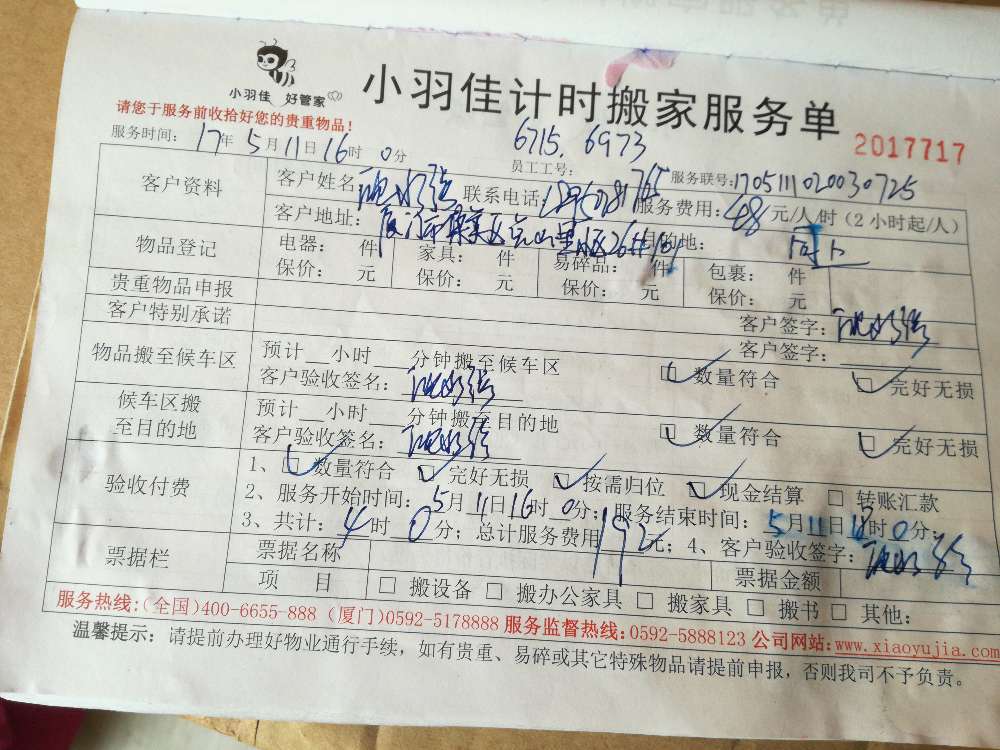 小羽佳 好管家
小羽佳计时搬家服务单
请您于服务前收拾好您的贵重物品！
2017717
服务时间：17年5月11日16时0分
6715. 6973
员工工号：
服务联号：170511102003 0725
客户资料
客户姓名
联系电话：
服务费用：48元/人/时（2小时起/人）
客户地址：
目的地：同上
物品登记
电器：件 家具：件 易碎品：件 包裹：件
保价：元 保价：元 保价：元 保价：元
贵重物品申报
客户签字：
客户特别承诺
客户签字：
物品搬至候车区
预计__小时 分钟搬至候车区
客户验收签名：
□数量符合 □完好无损
候车区搬至目的地
预计__小时 分钟搬至目的地
客户验收签名：
□数量符合 □完好无损
验收付费
1、□数量符合 □完好无损 □按需归位 □现金结算 □转账汇款
2、服务开始时间：5月11日16时0分；服务结束时间：5月11日18时0分；
3、共计：4时0分；总计服务费用192元；4、客户验收签字：
票据栏
票据名称 票据金额
项 目 □搬设备 □搬办公家具 □搬家具 □搬书 □其他：
服务热线：（全国）400-6655-888（厦门）0592-5178888 服务监督热线：0592-5888123 公司网站：www.xiaoyujia.com
温馨提示：请提前办理好物业通行手续，如有贵重、易碎或其它特殊物品请提前申报，否则我司不予负责。